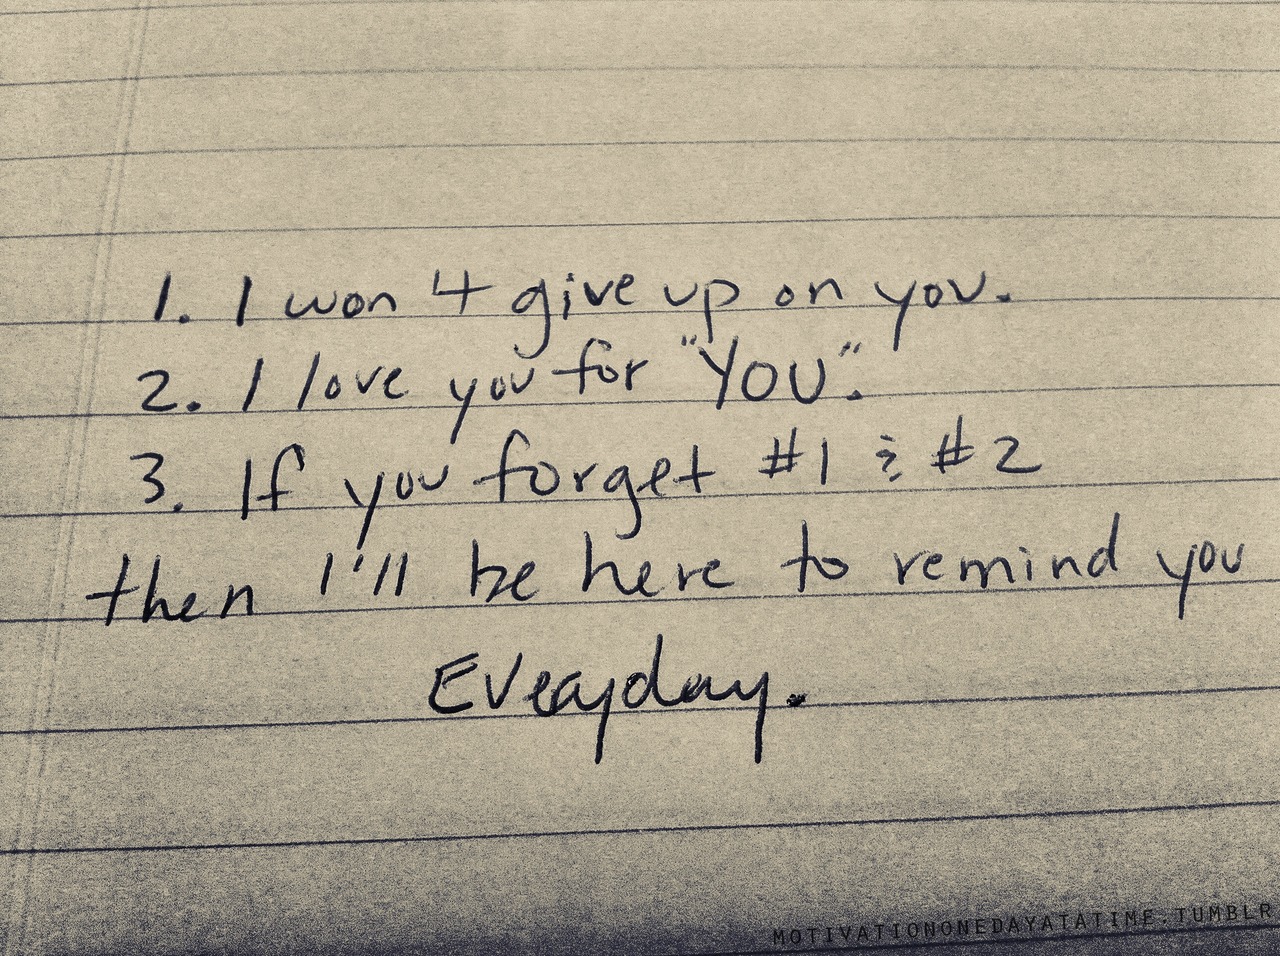 1. I won't give up on you.
2. I love you for "YOU".
3. If you forget #1 & #2
then I'll be here to remind you
Everyday.
MOTIVATIONONEDAYATATIME.TUMBLR